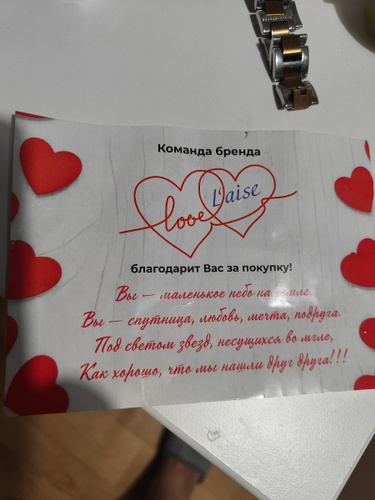 Команда бренда
love L'aise
благодарит Вас за покупку!
Вы — маленькое небо на земле.
Вы — спутница, любовь, мечта, подруга.
Под светом звезд, несущихся во мгле,
Как хорошо, что мы нашли друг друга!!!